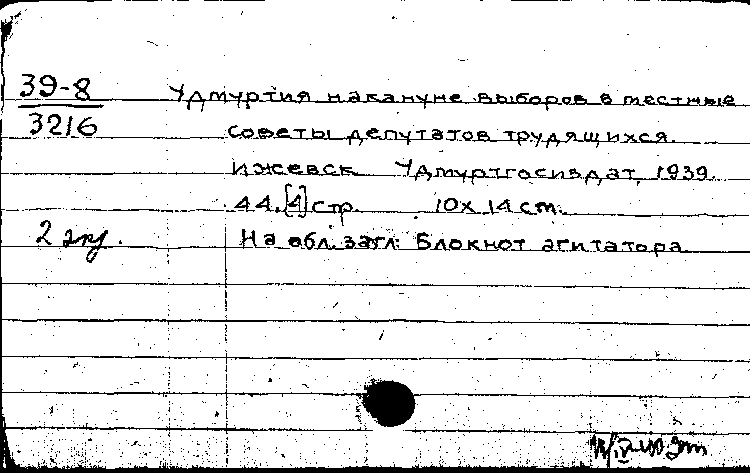 39-8
3216
Удмуртия накануне выборов в местные
советы депутатов трудящихся.
Ижевск Удмуртгосиздат, 1939.
44, [4] стр. 10х14 см.
2 экз.
На обл. загл: Блокнот агитатора